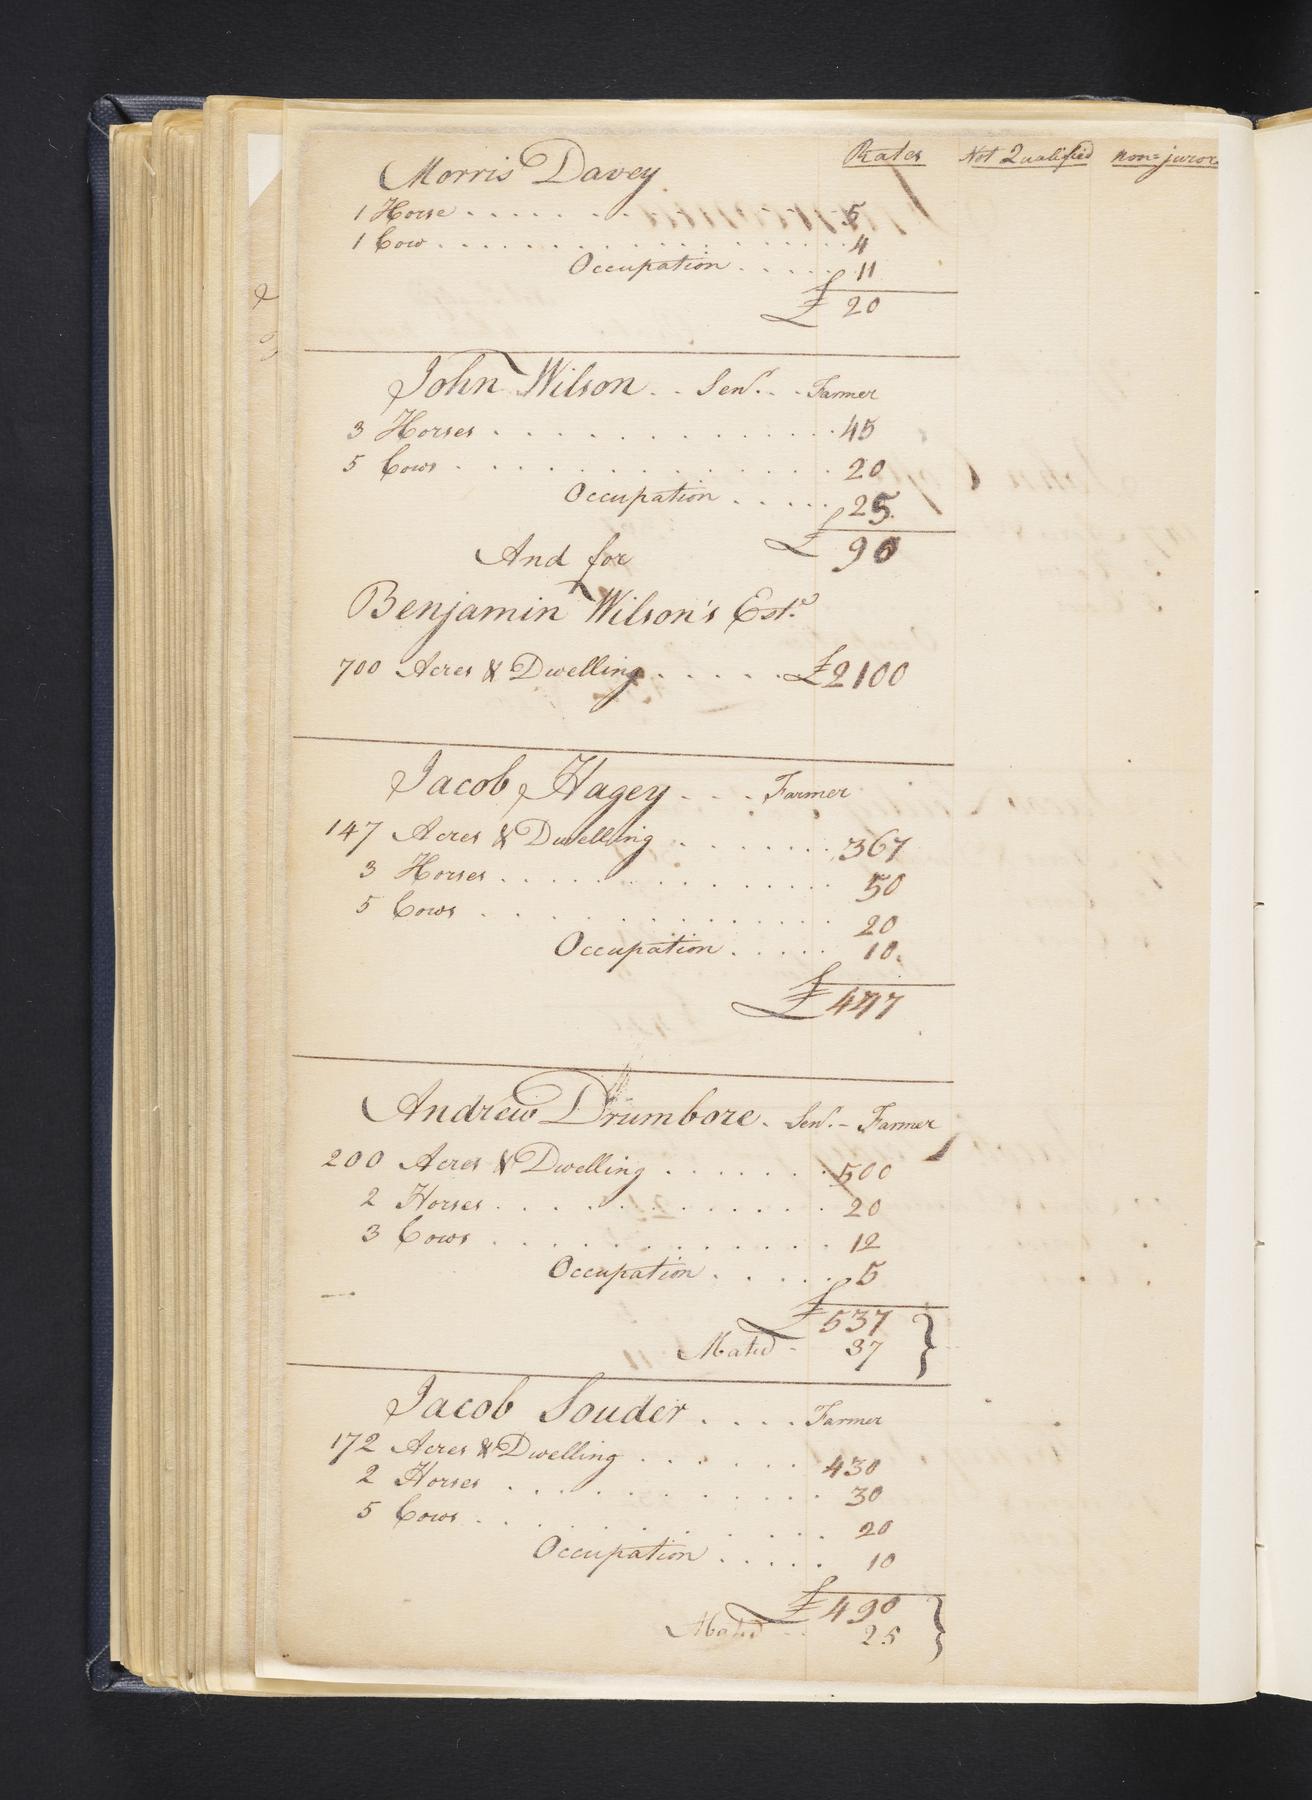 Rates Not Qualified non=juror
Morris Davey
1 Horse . . . . . . . 5
1 Cow . . . . . . . . 4
Occupation . . . . . 11
£ 20
John Wilson . . Senr. . . Farmer
3 Horses . . . . . . . 45
5 Cows . . . . . . . . 20
Occupation . . . . . 25
£ 90
And for
Benjamin Wilson's Estd.
700 Acres & Dwelling . . . . . £2100
Jacob Hagey - - - Farmer
147 Acres & Dwelling . . . . . . 367
3 Horses . . . . . . . 50
5 Cows . . . . . . . . 20
Occupation . . . . . 10.
£ 447
Andrew Drumbore. Senr. - Farmer
200 Acres & Dwelling . . . . . . 500
2 Horses . . . . . . . 20
3 Cows . . . . . . . . 12
Occupation . . . . . 5
£ 537
37
Jacob Souder . . . . Farmer
172 Acres & Dwelling . . . . . . 430
2 Horses . . . . . . . 30
5 Cows . . . . . . . . 20
Occupation . . . . . 10
£ 490
25